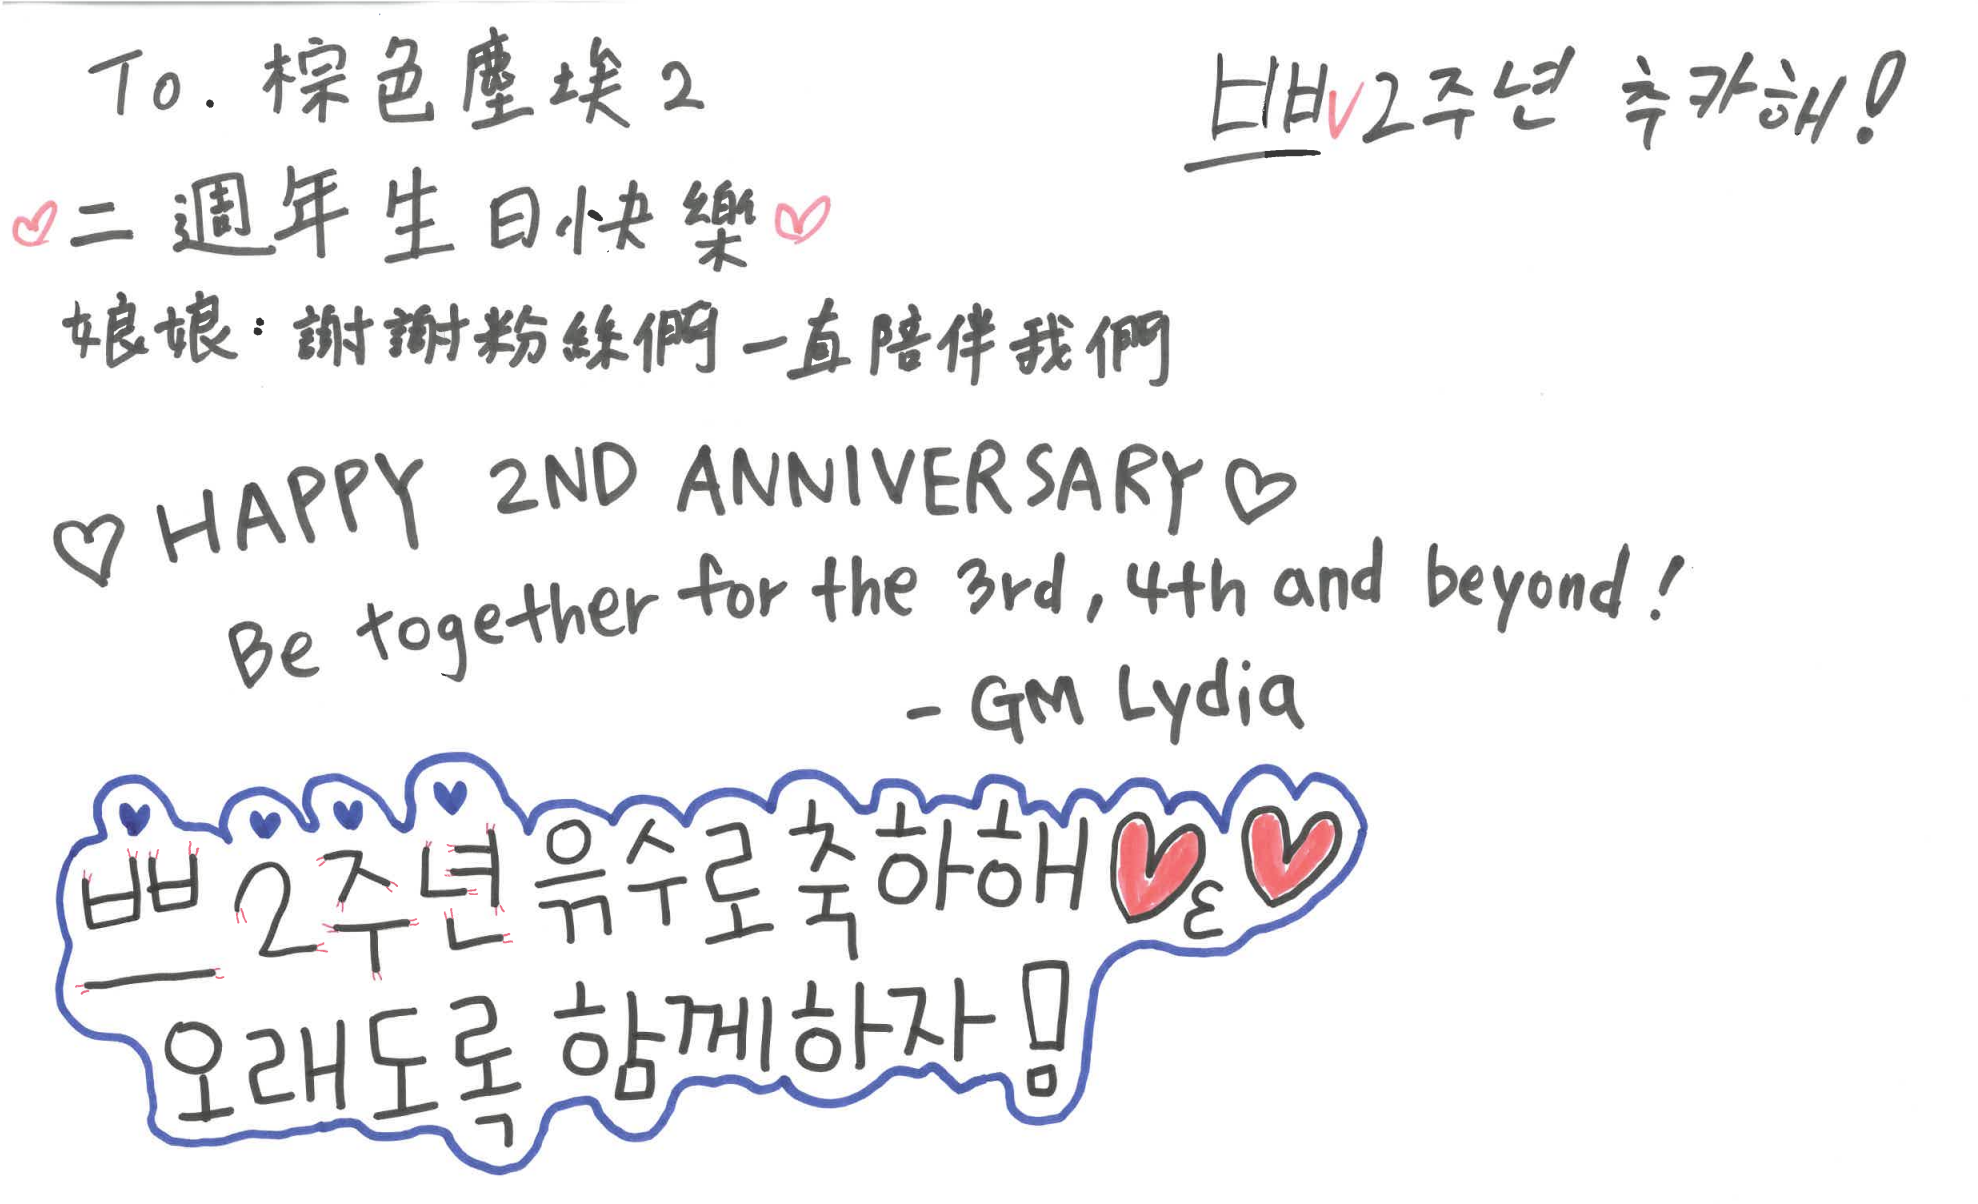 To. 棕色塵埃2
쁘V2주년 추카해!
♡二週年生日快樂♡
娘娘:謝謝粉絲們一直陪伴我們
♡HAPPY 2ND ANNIVERSARY♡
Be together for the 3rd, 4th and beyond!
- GM Lydia
쁘2주년 윾수로 축하해♥ε♥
오래도록 함께하자!